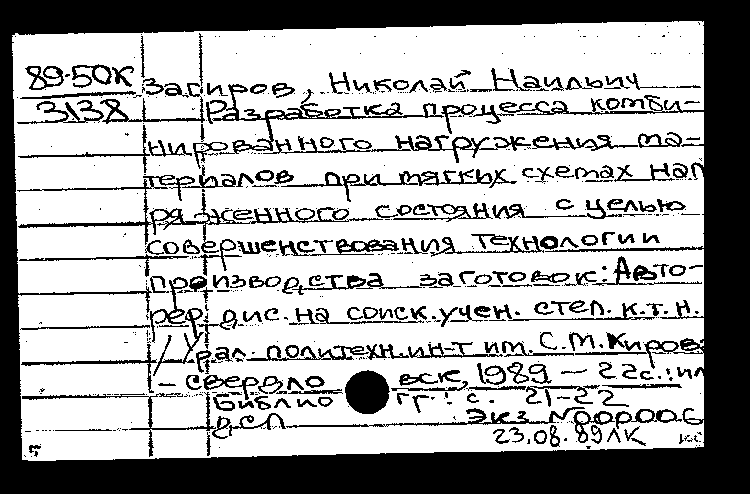 89-50К
3138
Загиров, Николай Наильич
Разработка процесса комби-
нированного нагружения ма-
териалов при мягких схемах нап
ряженного состояния с целью
совершенствования технологии
производства заготовок: Авто-
реф. дис. на соиск. учен. степ. к.т.н.
/Урал. политехн. ин-т им. С.М. Кирова
- Свердловск, 1989 — 22с.: ил
Библиогр.: с. 21-22
ДСП Экз N000006
23.08.89 ЛК кс
5